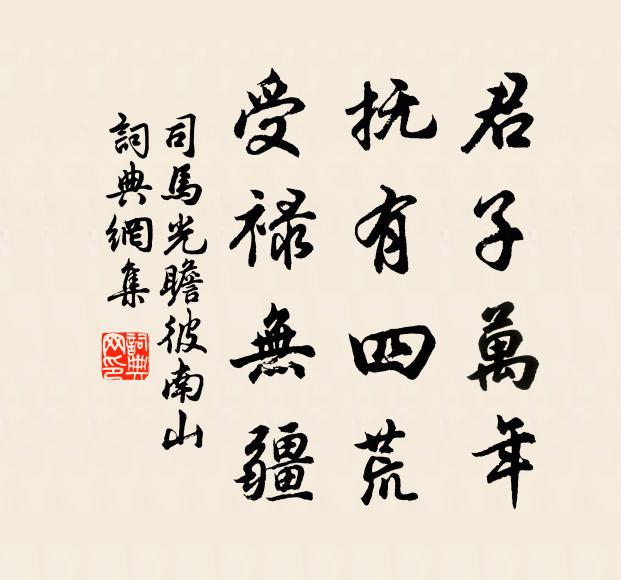 君子萬年
抚有四荒
受禄無疆
司馬光瞻彼南山
詞典網集
詞典
网印